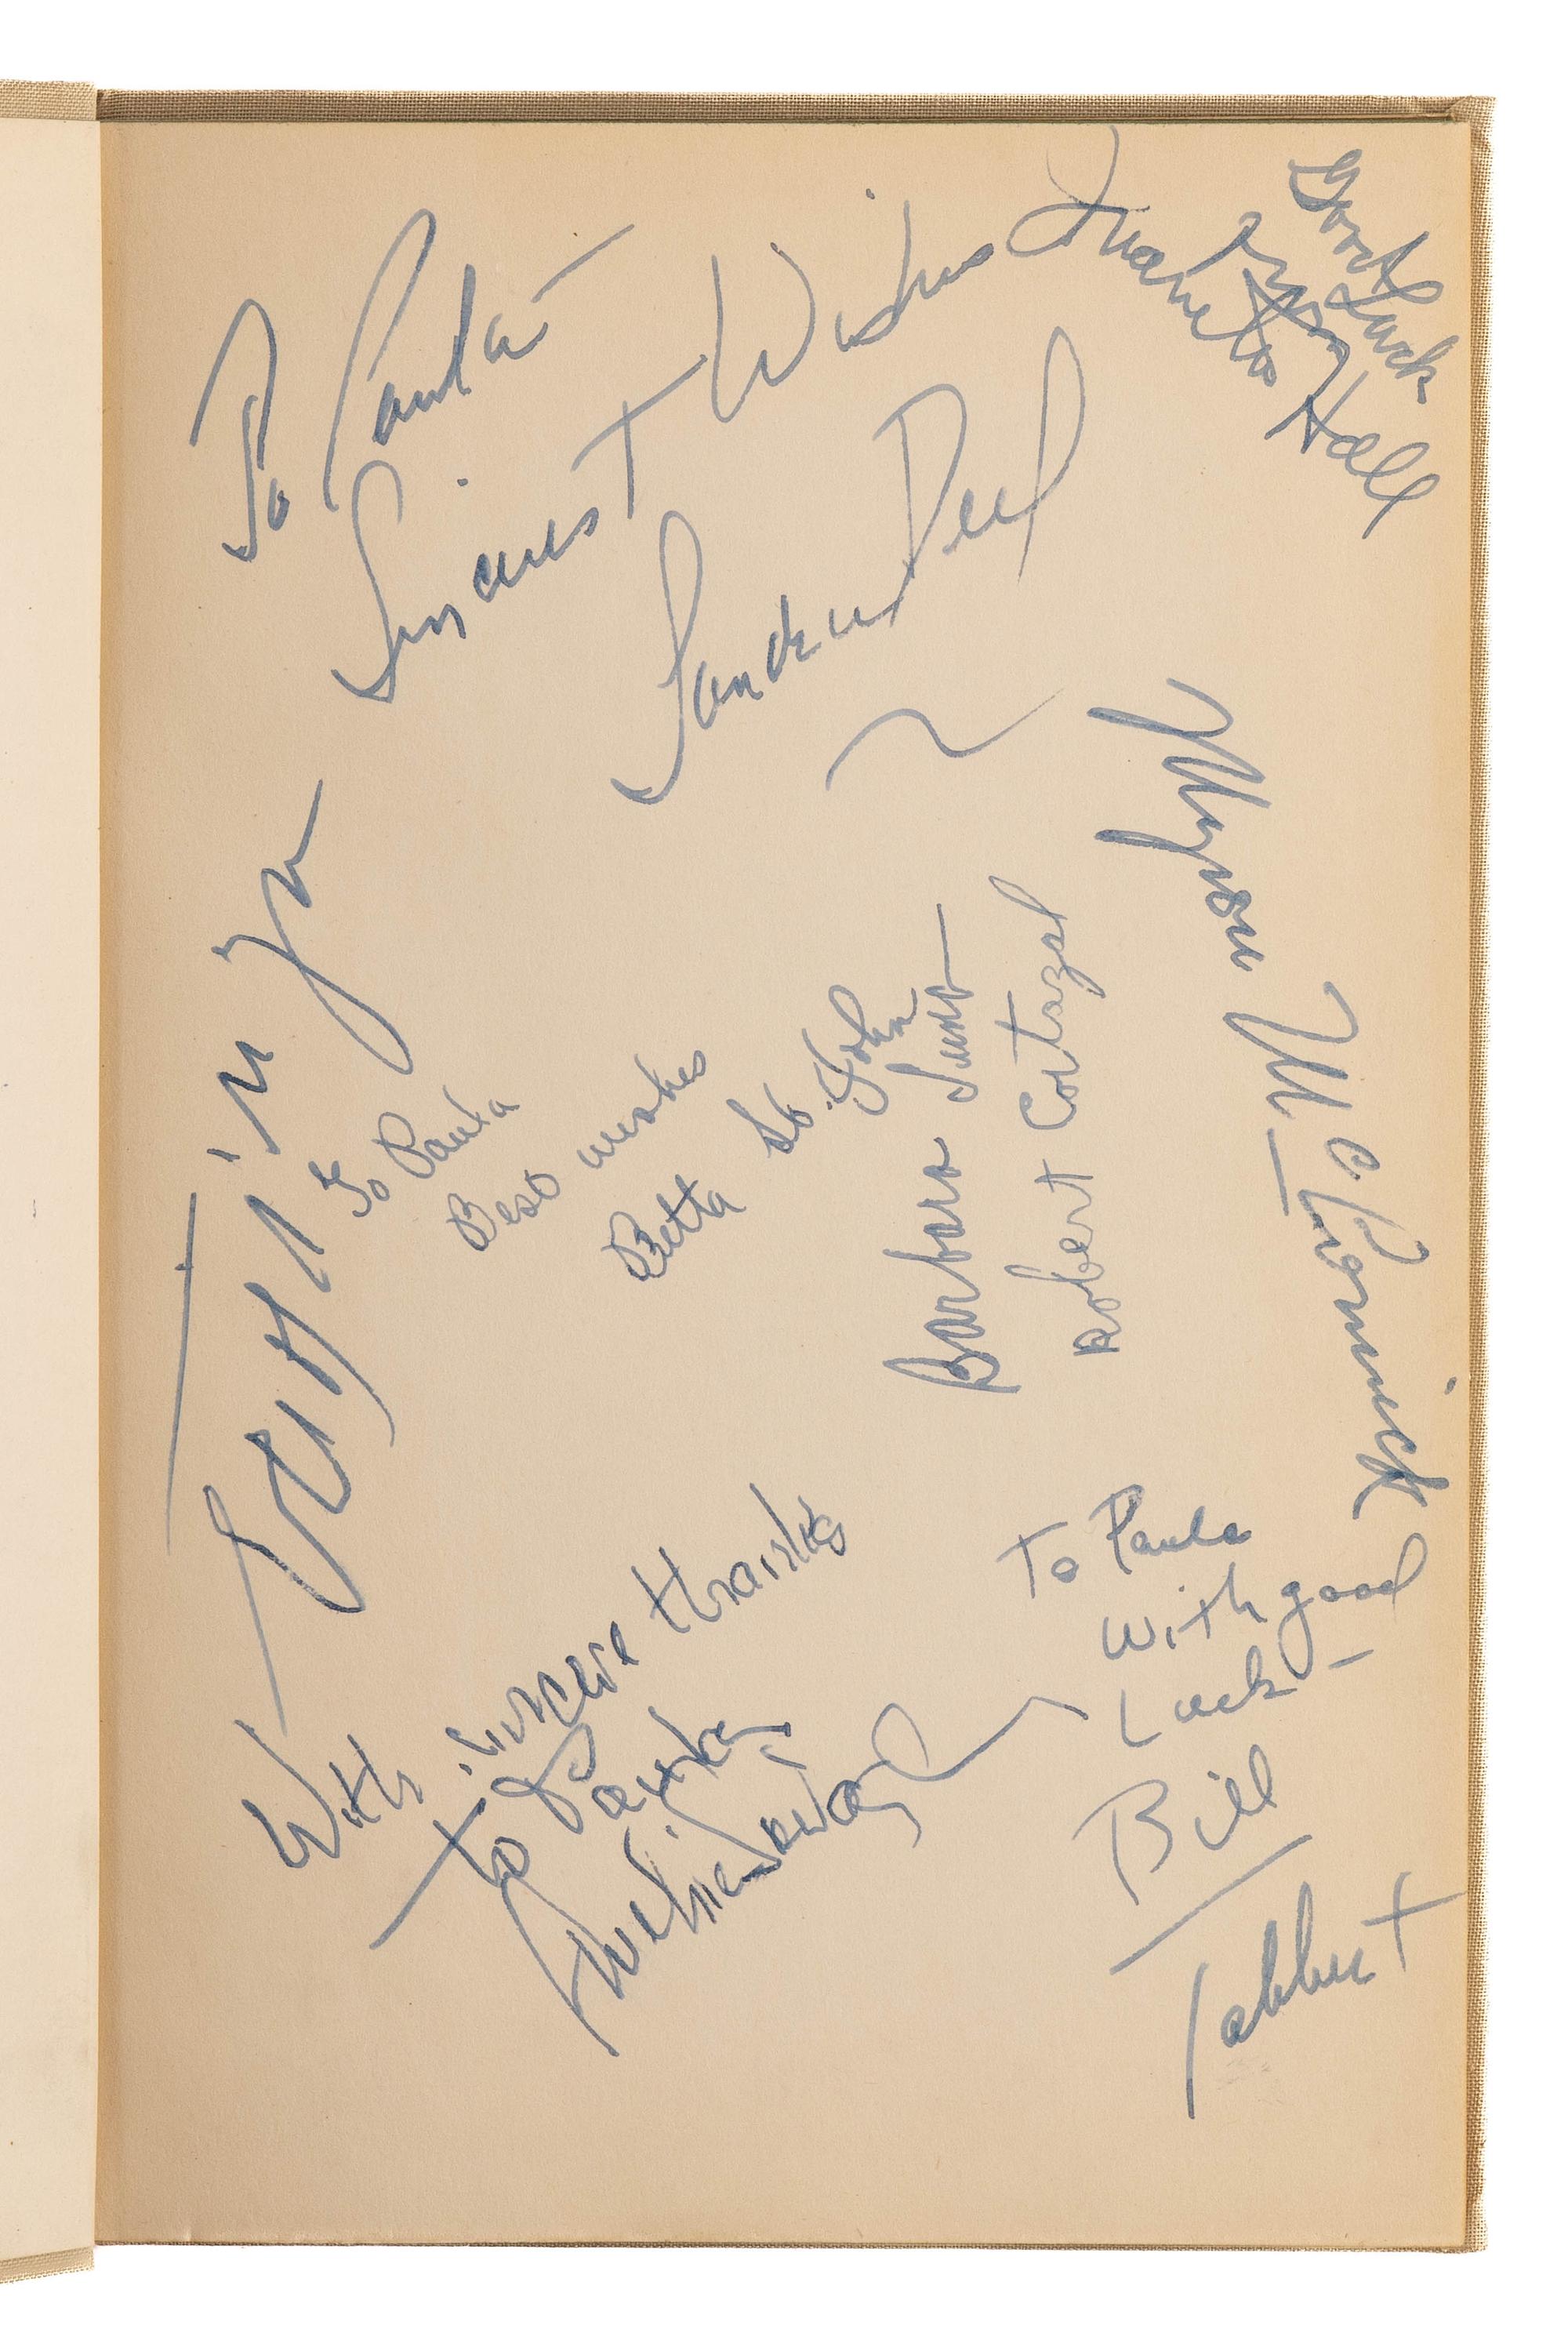 To Paula
Sincerest Wishes
Sandra Deel
Good Luck
Juanita
Hall
Ezio Pinza
To Paula
Best wishes
Betta St. John
Barbara Luna
Robert Cortazal
Myron McCormick
With sincere thanks
to Paula
To Paula
With good
Luck –
Bill
Tabbert